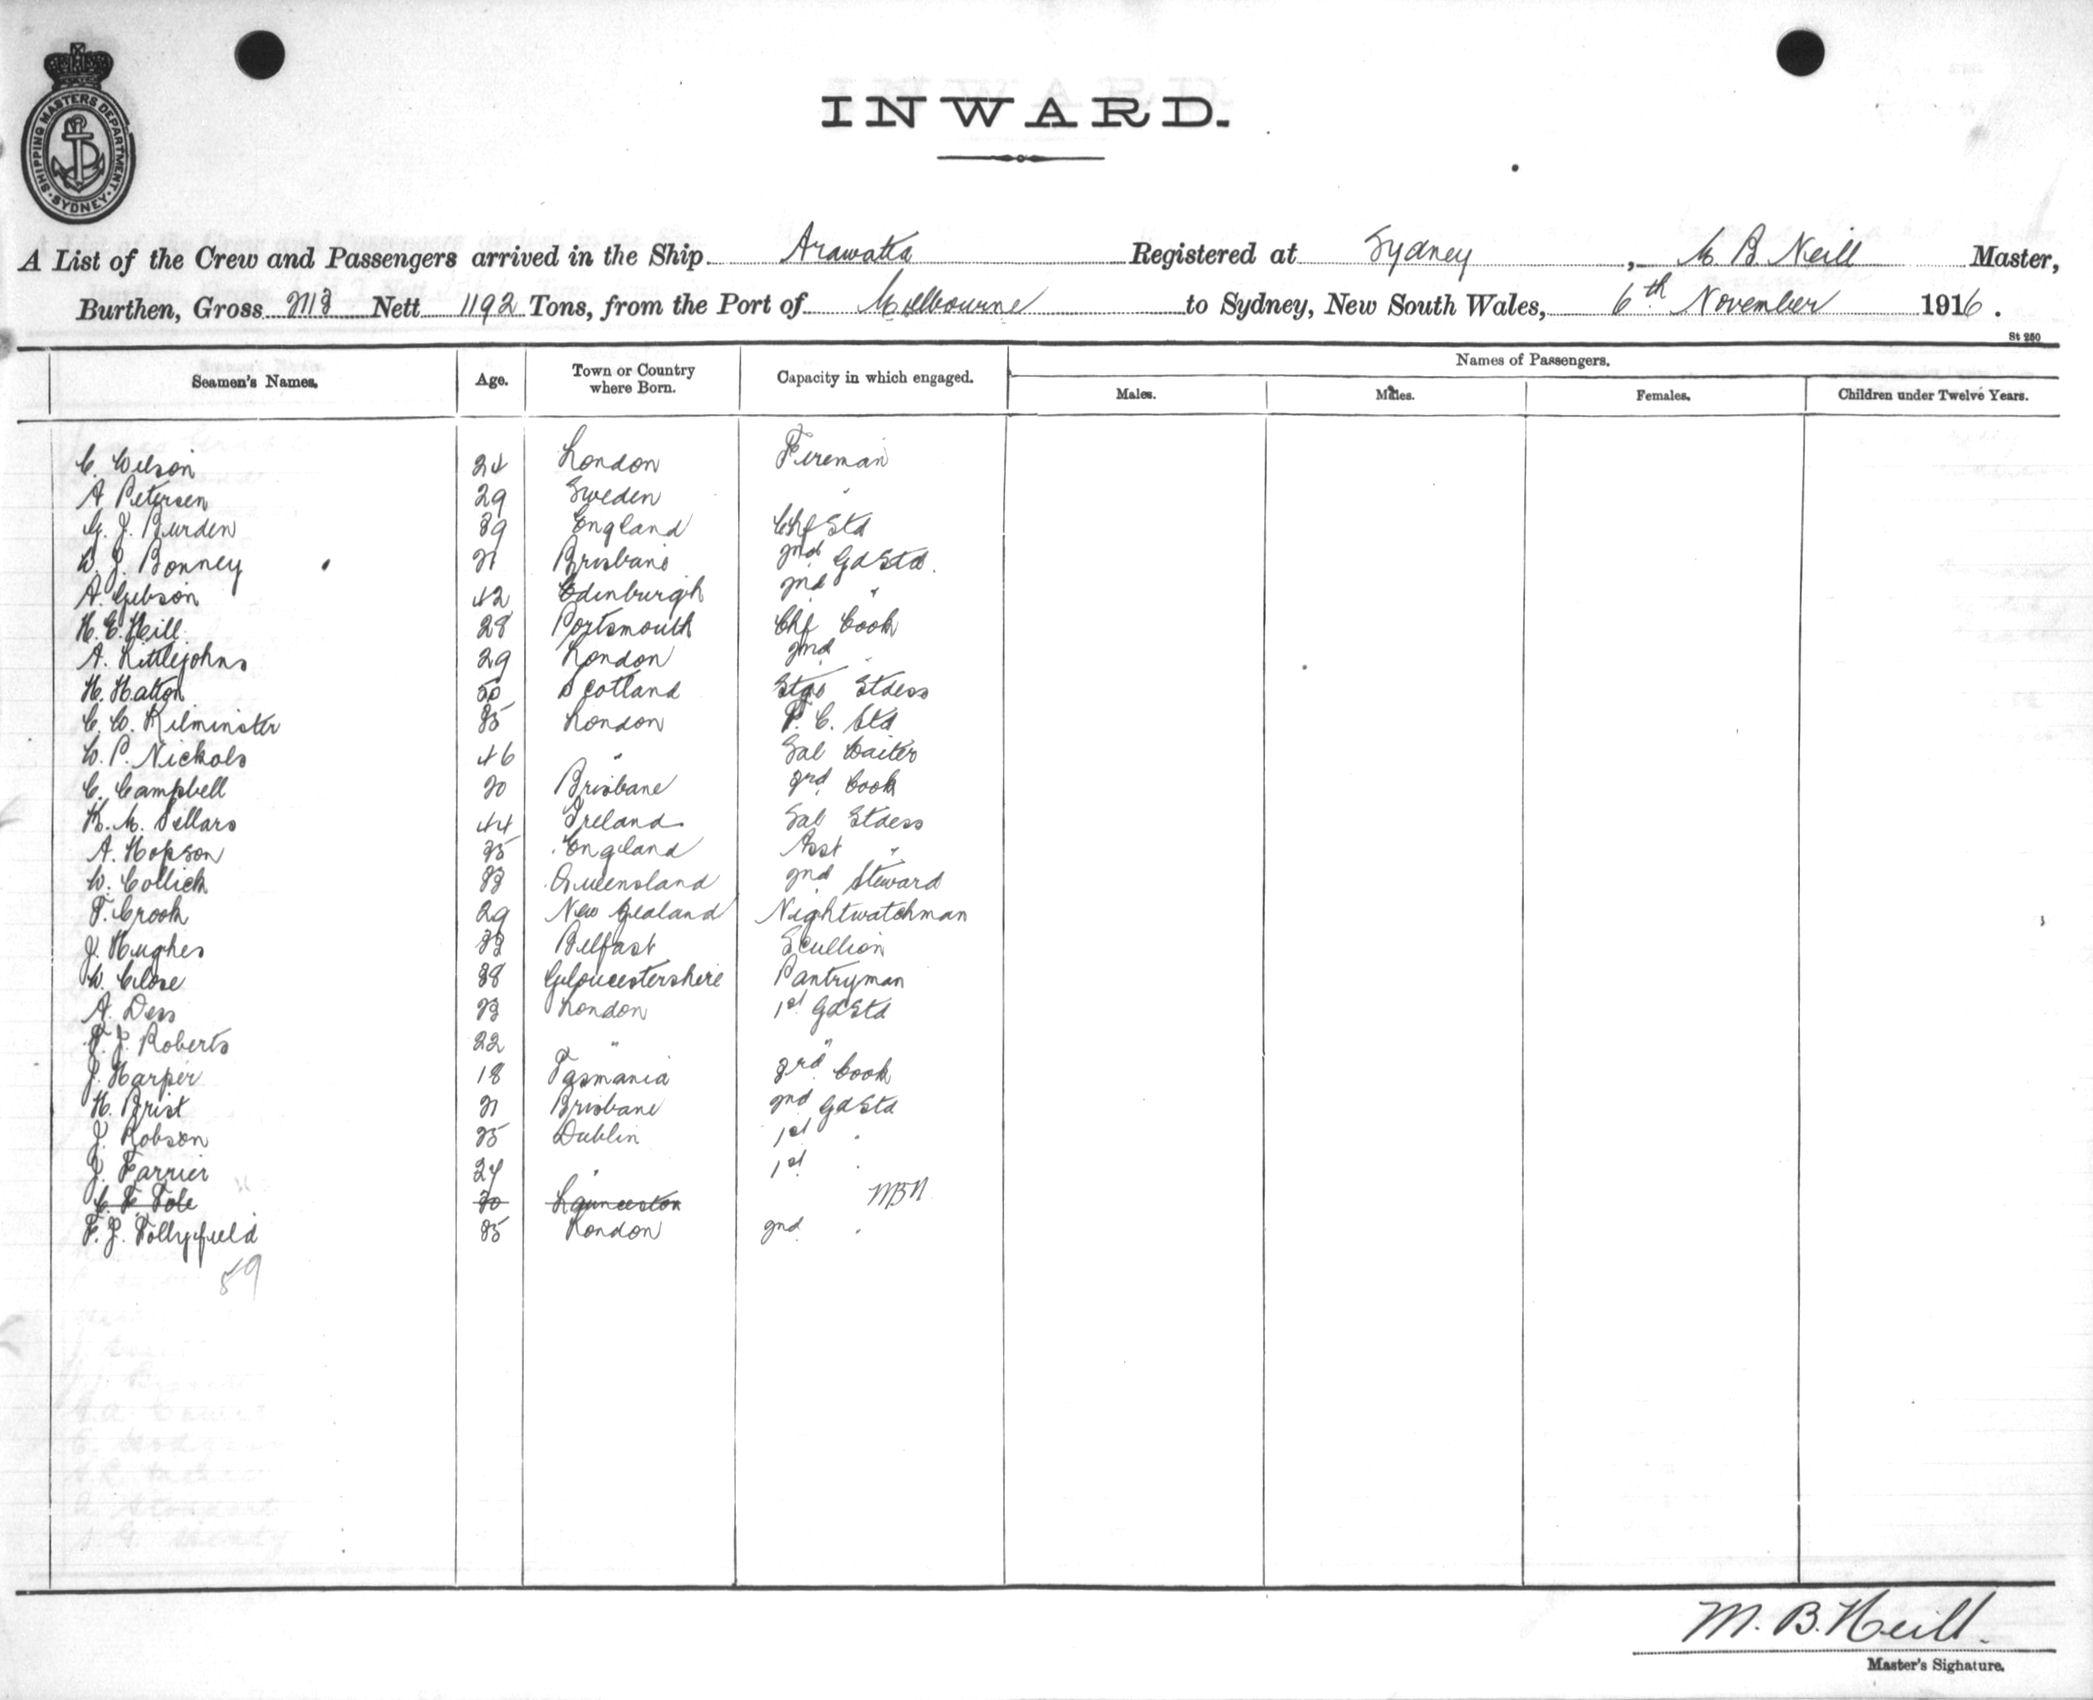 SHIPPING MASTERS DEPARTMENT · SYDNEY ·
INWARD.
A List of the Crew and Passengers arrived in the Ship Arawatta Registered at Sydney, M B. Neill Master,
Burthen, Gross 2113 Nett 1192 Tons, from the Port of Melbourne to Sydney, New South Wales, 6th November 1916.
St 250
Seamen's Names. Age. Town or Country where Born. Capacity in which engaged. Names of Passengers.
Males. Males. Females. Children under Twelve Years.
C. Wilson 24 London Fireman
A Petersen 29 Sweden "
G. J. Burden 39 England Chf Std
W. J. Bonney 21 Brisbane 2nd GdStd.
A. Gibson 42 Edinburgh 2nd "
H. E. Hill 28 Portsmouth Chf Cook
A. Littlejohns 29 London 2nd "
H. Hatton 50 Scotland Stge Stdess
C. W. Kilminster 35 London F. C. Std
W. P. Nickols 46 " Sal Waiter
C. Campbell 20 Brisbane 3rd Cook
K. M. Sellars 44 Ireland Sal Stdess
A. Hopson 35 England Asst "
W. Collick 33 Queensland 2nd Steward
F. Crook 29 New Zealand Nightwatchman
J. Hughes 33 Belfast Scullion
W. Close 38 Gloucestershire Pantryman
A. Dess 23 London 1st GdStd
F. J. Roberts 22 " "
J. Harper 18 Tasmania 3rd Cook
H. Brist 21 Brisbane 2nd GdStd
J. Robson 25 Dublin 1st "
J. Farrier 24 " 1st "
C. F. Tole 30 Launceston MBN
F. J. Follyfield 35 London 2nd "
59
M. B. Neill.
Master's Signature.